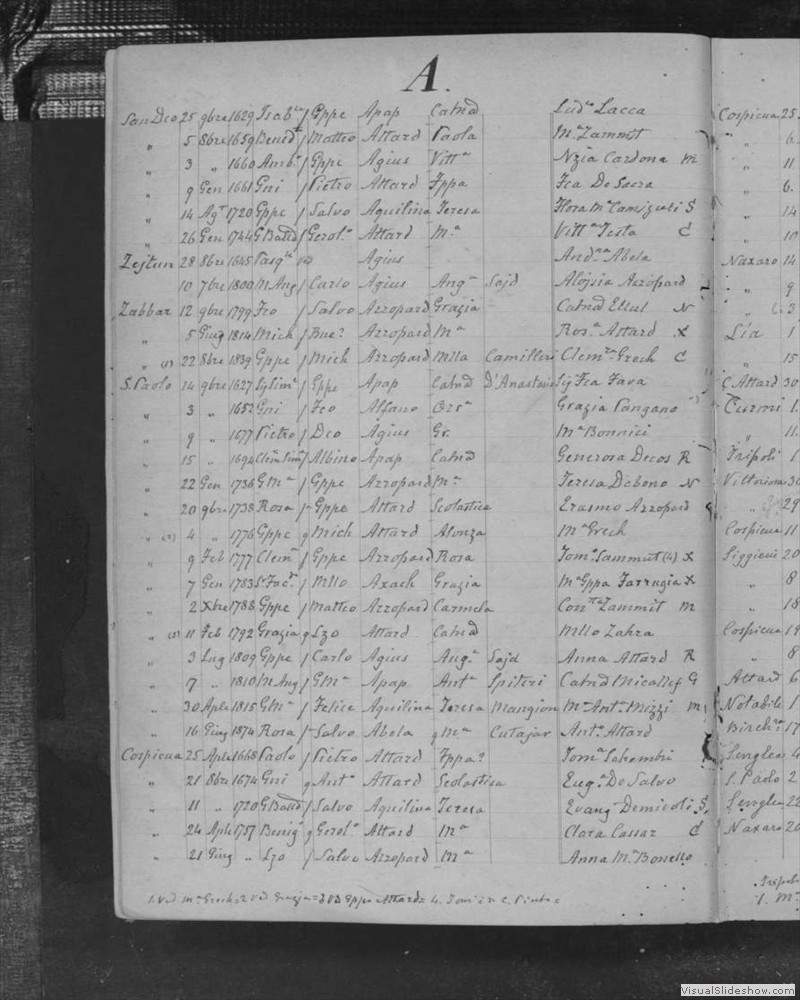 A.
San Dco 25 9bre 1629 Isab.la / Gppe Apap Catnd Lud.a Lacca Cospicua 25
" 5 8bre 1659 Bened.t / Matteo Attard Paola M.a Zammit " 6.
" 3 " 1660 Amb.o / Gppe Agius Vitt.a Nzia Cardona M " 11
" 9 Gen 1661 Gni / Pietro Attard Fppa Fca De Sacra " 6.
" 14 Ag.t 1720 Gppe / Salvo Aquilina Teresa Flora M.a Camizuli S " 14
" 26 Gen 1744 GBattd / Gerol.o Attard M.a Vitt.a Testa C " 10
Zejtun 28 8bre 1645 Pasq.le Agius And.na Abela Naxaro 14
10 7bre 1800 M Aug / Carlo Agius Ang.a Sajd Aloysia Azzopard " 9
Zabbar 12 9bre 1799 Fro / Salvo Azzopard Grazia Catnd Ellul N " 3
" 5 Giug 1814 Mich / Bne? Azzopard M.a Ros.a Attard X Lia 1
" (1) 22 8bre 1839 Gppe / Mich Azzopard Mlla Camilleri Clem.za Grech C " 15
S. Paolo 14 9bre 1627 / Gppe Apap Catnd D'Anastasio Fca Fava C Attard 30
" 3 " 1652 Gni / Fco Alfano Ors.a Grazia Pangano Curmi 1.
" 9 " 1677 Pietro / Dco Agius Gr. M.a Bonnici " 11.
" 15 " 1694 / Albino Apap Catnd Generosa Decos R Tripoli 1
" 22 Gen 1736 GM.a / Gppe Azzopard M.a Teresa Debono N Vittoriosa 30
" 20 9bre 1738 Rosa / Gppe Attard Scolastica Erasmo Azzopard " 29
" (2) 4 " 1776 Gppe q Mich Attard Alonza M.a Grech Cospicua 11
" 9 Feb 1777 Clem.a / Gppe Azzopard Rosa Tom.a Sammut (4) X Siggieui 20
" 7 Gen 1783 / Mllo Axach Grazia M.a Gppa Farrugia X " 8
" 2 Xbre 1788 Gppe / Matteo Azzopard Carmela Con.tta Zammit M " 18
" (3) 11 Feb 1792 Grazia q Lzo Attard Catnd Mllo Zahra Cospicua 19
" 3 Lug 1809 Gppe / Carlo Agius Aug.a Sajd Anna Attard R " 8
" 7 " 1810 M Aug / GM.a Apap Ant.a Spiteri Catnd Micallef G Attard 6
" 30 Aple 1815 GM.a / Felice Aquilina Teresa Mangion M.a Ant.a Mizzi M Notabile 1
" 16 Giug 1874 Rosa / Salvo Abela q M.a Cutajar Ant.o Attard Birch.ra 17
Cospicua 25 Aple 1668 Paolo / Pietro Attard Fppa? Tom.a Schembri Senglea 4
" 21 8bre 1674 Gni q Ant.o Attard Scolastica Eug.a De Salvo S. Paolo 2
" 11 " 1720 GBattd / Salvo Aquilina Teresa Evang. Demicoli S. Senglea 22
" 24 Aple 1757 Benig.o q Gerol.o Attard M.a Clara Cassar C Naxaro 20
" 21 Giug " Lzo / Salvo Azzopard M.a Anna M.a Bonello
1. Vd M.a Grech 2 Vd Grazia 3 VD Gppe Attard 4.
1. M.a
VisualSlideshow.com